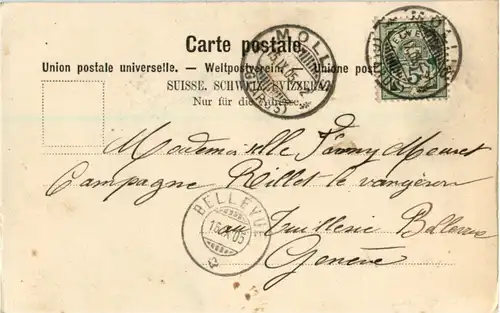 Carte postale.
Union postale universelle. — Weltpostverein. — Unione postale
SUISSE. SCHWEIZ. SVIZZERA.
Nur für die Adresse.
MOLLIS
(GLARUS)
5
Mademoiselle Fanny
Campagne Rillet le
au Tuillerie Bellevue
Genève
BELLEVUE
16.IX.05